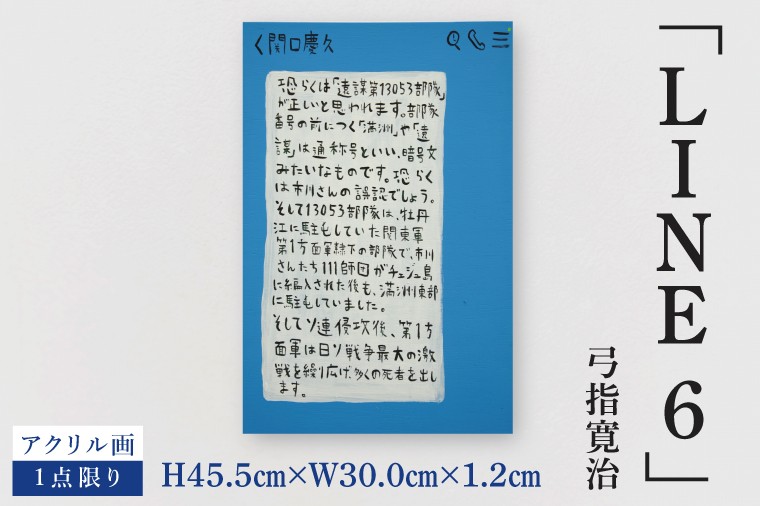 く 関口慶久
恐らくは「遠謀第13053部隊」
が正しいと思われます。部隊
番号の前につく「満洲」や「遠
謀」は通称号といい、暗号文
みたいなものです。恐らく
は市川さんの誤認でしょう。
そして13053部隊は、牡丹
江に駐屯していた関東軍
第1方面軍隷下の部隊で、市川
さんたち111師団がチェジュ島
に編入された後も、満洲東部
に駐屯していました。
そしてソ連侵攻後、第1方
面軍は日ソ戦争最大の激
戦を繰り広げ、多くの死者を出し
ます。
「LINE 6」
弓指寛治
アクリル画
1点限り
H45.5cm×W30.0cm×1.2cm